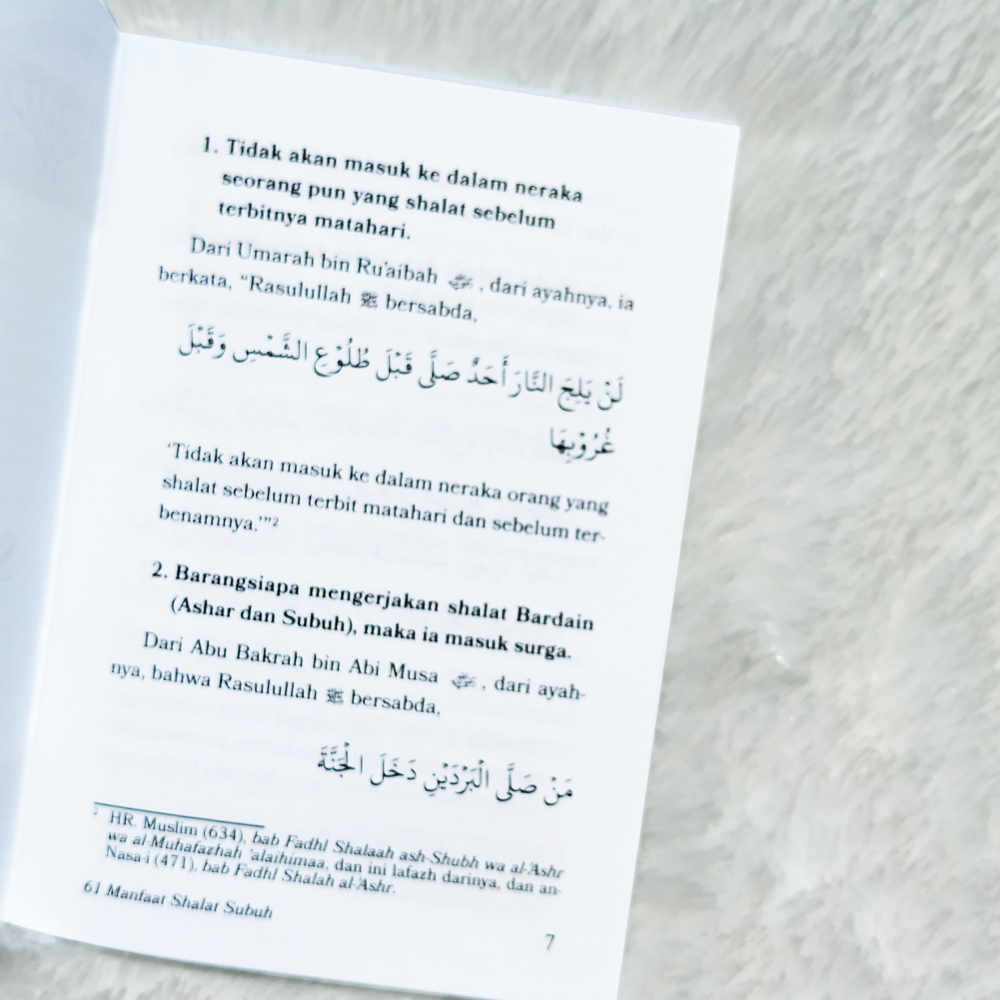 1. Tidak akan masuk ke dalam neraka
seorang pun yang shalat sebelum
terbitnya matahari.
Dari Umarah bin Ru'aibah , dari ayahnya, ia
berkata, “Rasulullah ﷺ bersabda,
لَنْ يَلِجَ النَّارَ أَحَدٌ صَلَّى قَبْلَ طُلُوْعِ الشَّمْسِ وَقَبْلَ
غُرُوْبِهَا
‘Tidak akan masuk ke dalam neraka orang yang
shalat sebelum terbit matahari dan sebelum ter-
benamnya.’”²
2. Barangsiapa mengerjakan shalat Bardain
(Ashar dan Subuh), maka ia masuk surga.
Dari Abu Bakrah bin Abi Musa , dari ayah-
nya, bahwa Rasulullah ﷺ bersabda,
مَنْ صَلَّى الْبَرْدَيْنِ دَخَلَ الْجَنَّةَ
² HR. Muslim (634), bab Fadhl Shalaah ash-Shubh wa al-'Ashr
wa al-Muhafazhah 'alaihimaa, dan ini lafazh darinya, dan an-
Nasa-i (471), bab Fadhl Shalah al-'Ashr.
61 Manfaat Shalat Subuh
7